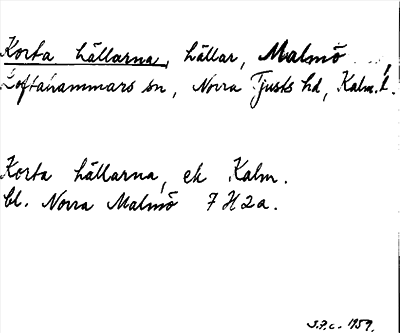 Korta hällarna, hällar, Malmö,
Loftahammars sn, Norra Tjusts hd, Kalm. l.
Korta hällarna, ek Kalm.
bl. Norra Malmö 7 H 2 a.
S.P.c. 1959.